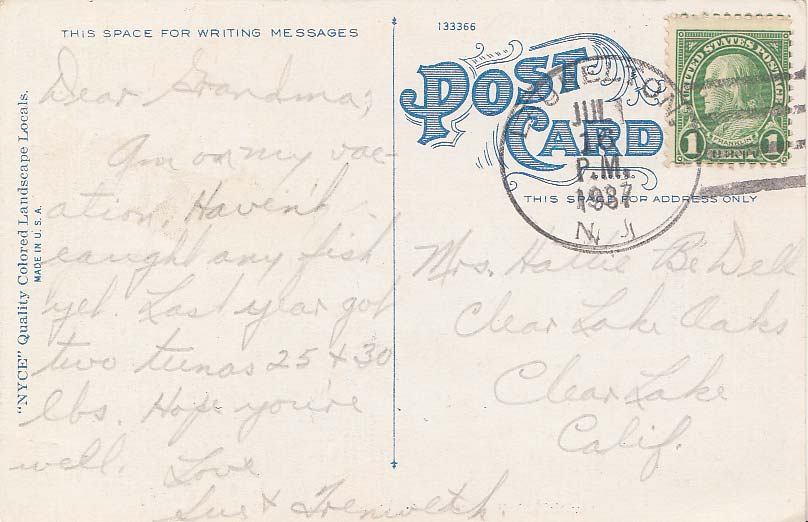 THIS SPACE FOR WRITING MESSAGES
Dear Grandma,
Am on my vac-
ation. Haven't
caught any fish
yet. Last year got
two tunas 25 & 30
lbs. Hope you're
well. Love
Sus &
"NYCE" Quality Colored Landscape Locals.
MADE IN U.S.A.
133366
POST
CARD
THIS SPACE FOR ADDRESS ONLY
JUL
P.M.
1937
N. J.
UNITED STATES POSTAGE
1 1
Mrs. Hattie BeWell
Clear Lake Oaks
Clear Lake
Calif.